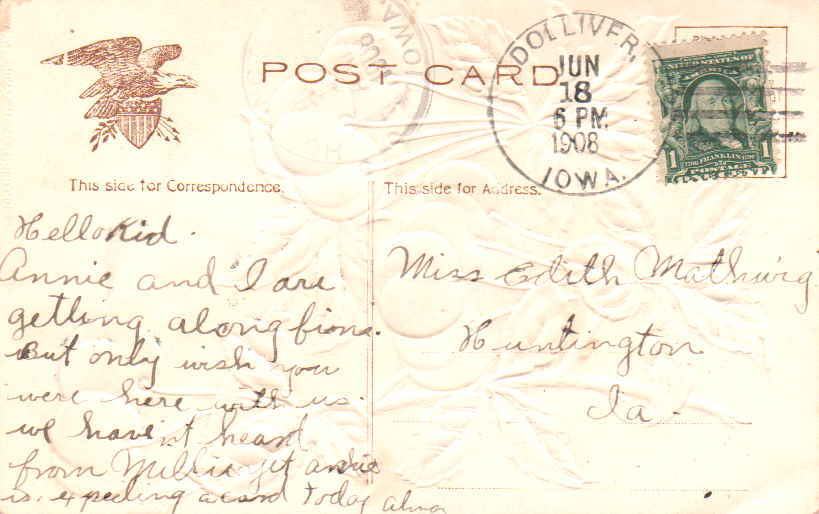 POST CARD
DOLLIVER,
JUN
18
6 PM
1908
IOWA.
IOWA
1908
UNITED STATES OF
AMERICA
1 FRANKLIN 1
POSTAGE
This side for Correspondence.
This side for Address.
Hello Kid.
Annie and I are
getting along fione.
But only wish you
were here with us.
we haven't heard
from Millie yet annie
is expecting a card today
Miss Edith Mathwig
Huntington
Ia.